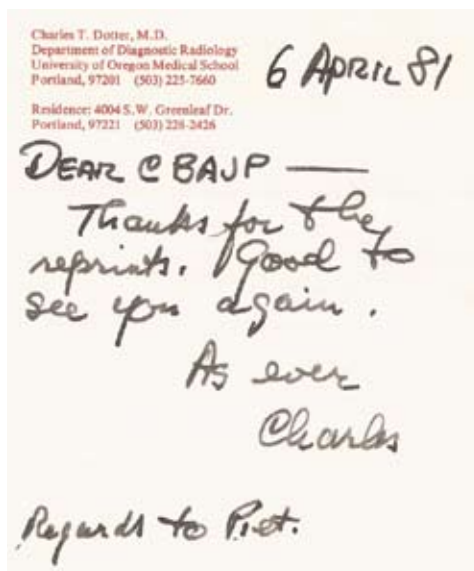 Charles T. Dotter, M.D.
Department of Diagnostic Radiology
University of Oregon Medical School
Portland, 97201 (503) 225-7660
Residence: 4004 S.W. Greenleaf Dr.
Portland, 97221 (503) 228-2426
6 APRIL 81
DEAR C BAJP —
Thanks for the
reprints. Good to
see you again.
As ever
Charles
Regards to Piet.